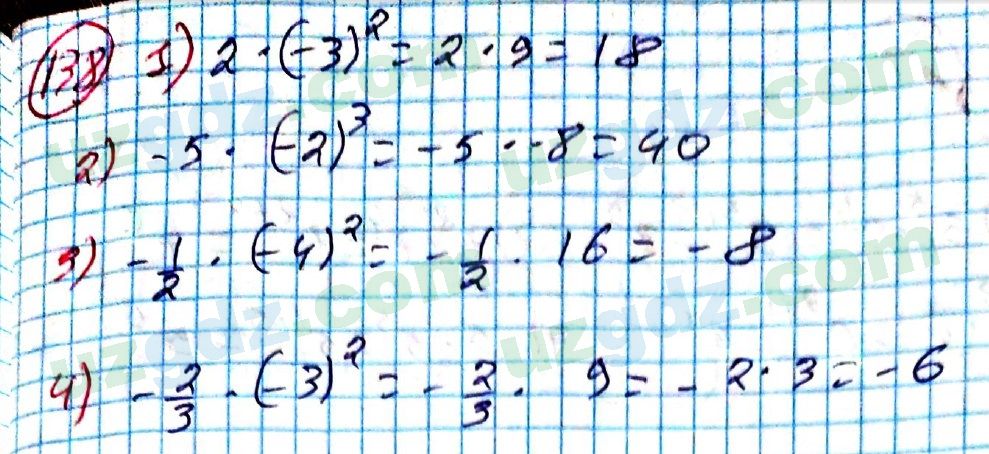 138 1) 2 · (-3)² = 2 · 9 = 18
2) -5 · (-2)³ = -5 · -8 = 40
3) -1/2 · (-4)² = -1/2 · 16 = -8
4) -2/3 · (-3)² = -2/3 · 9 = -2 · 3 = -6
uzgdz.com
uzgdz.com
uzgdz.com
uzgdz.com
uzgdz.com
uzgdz.com